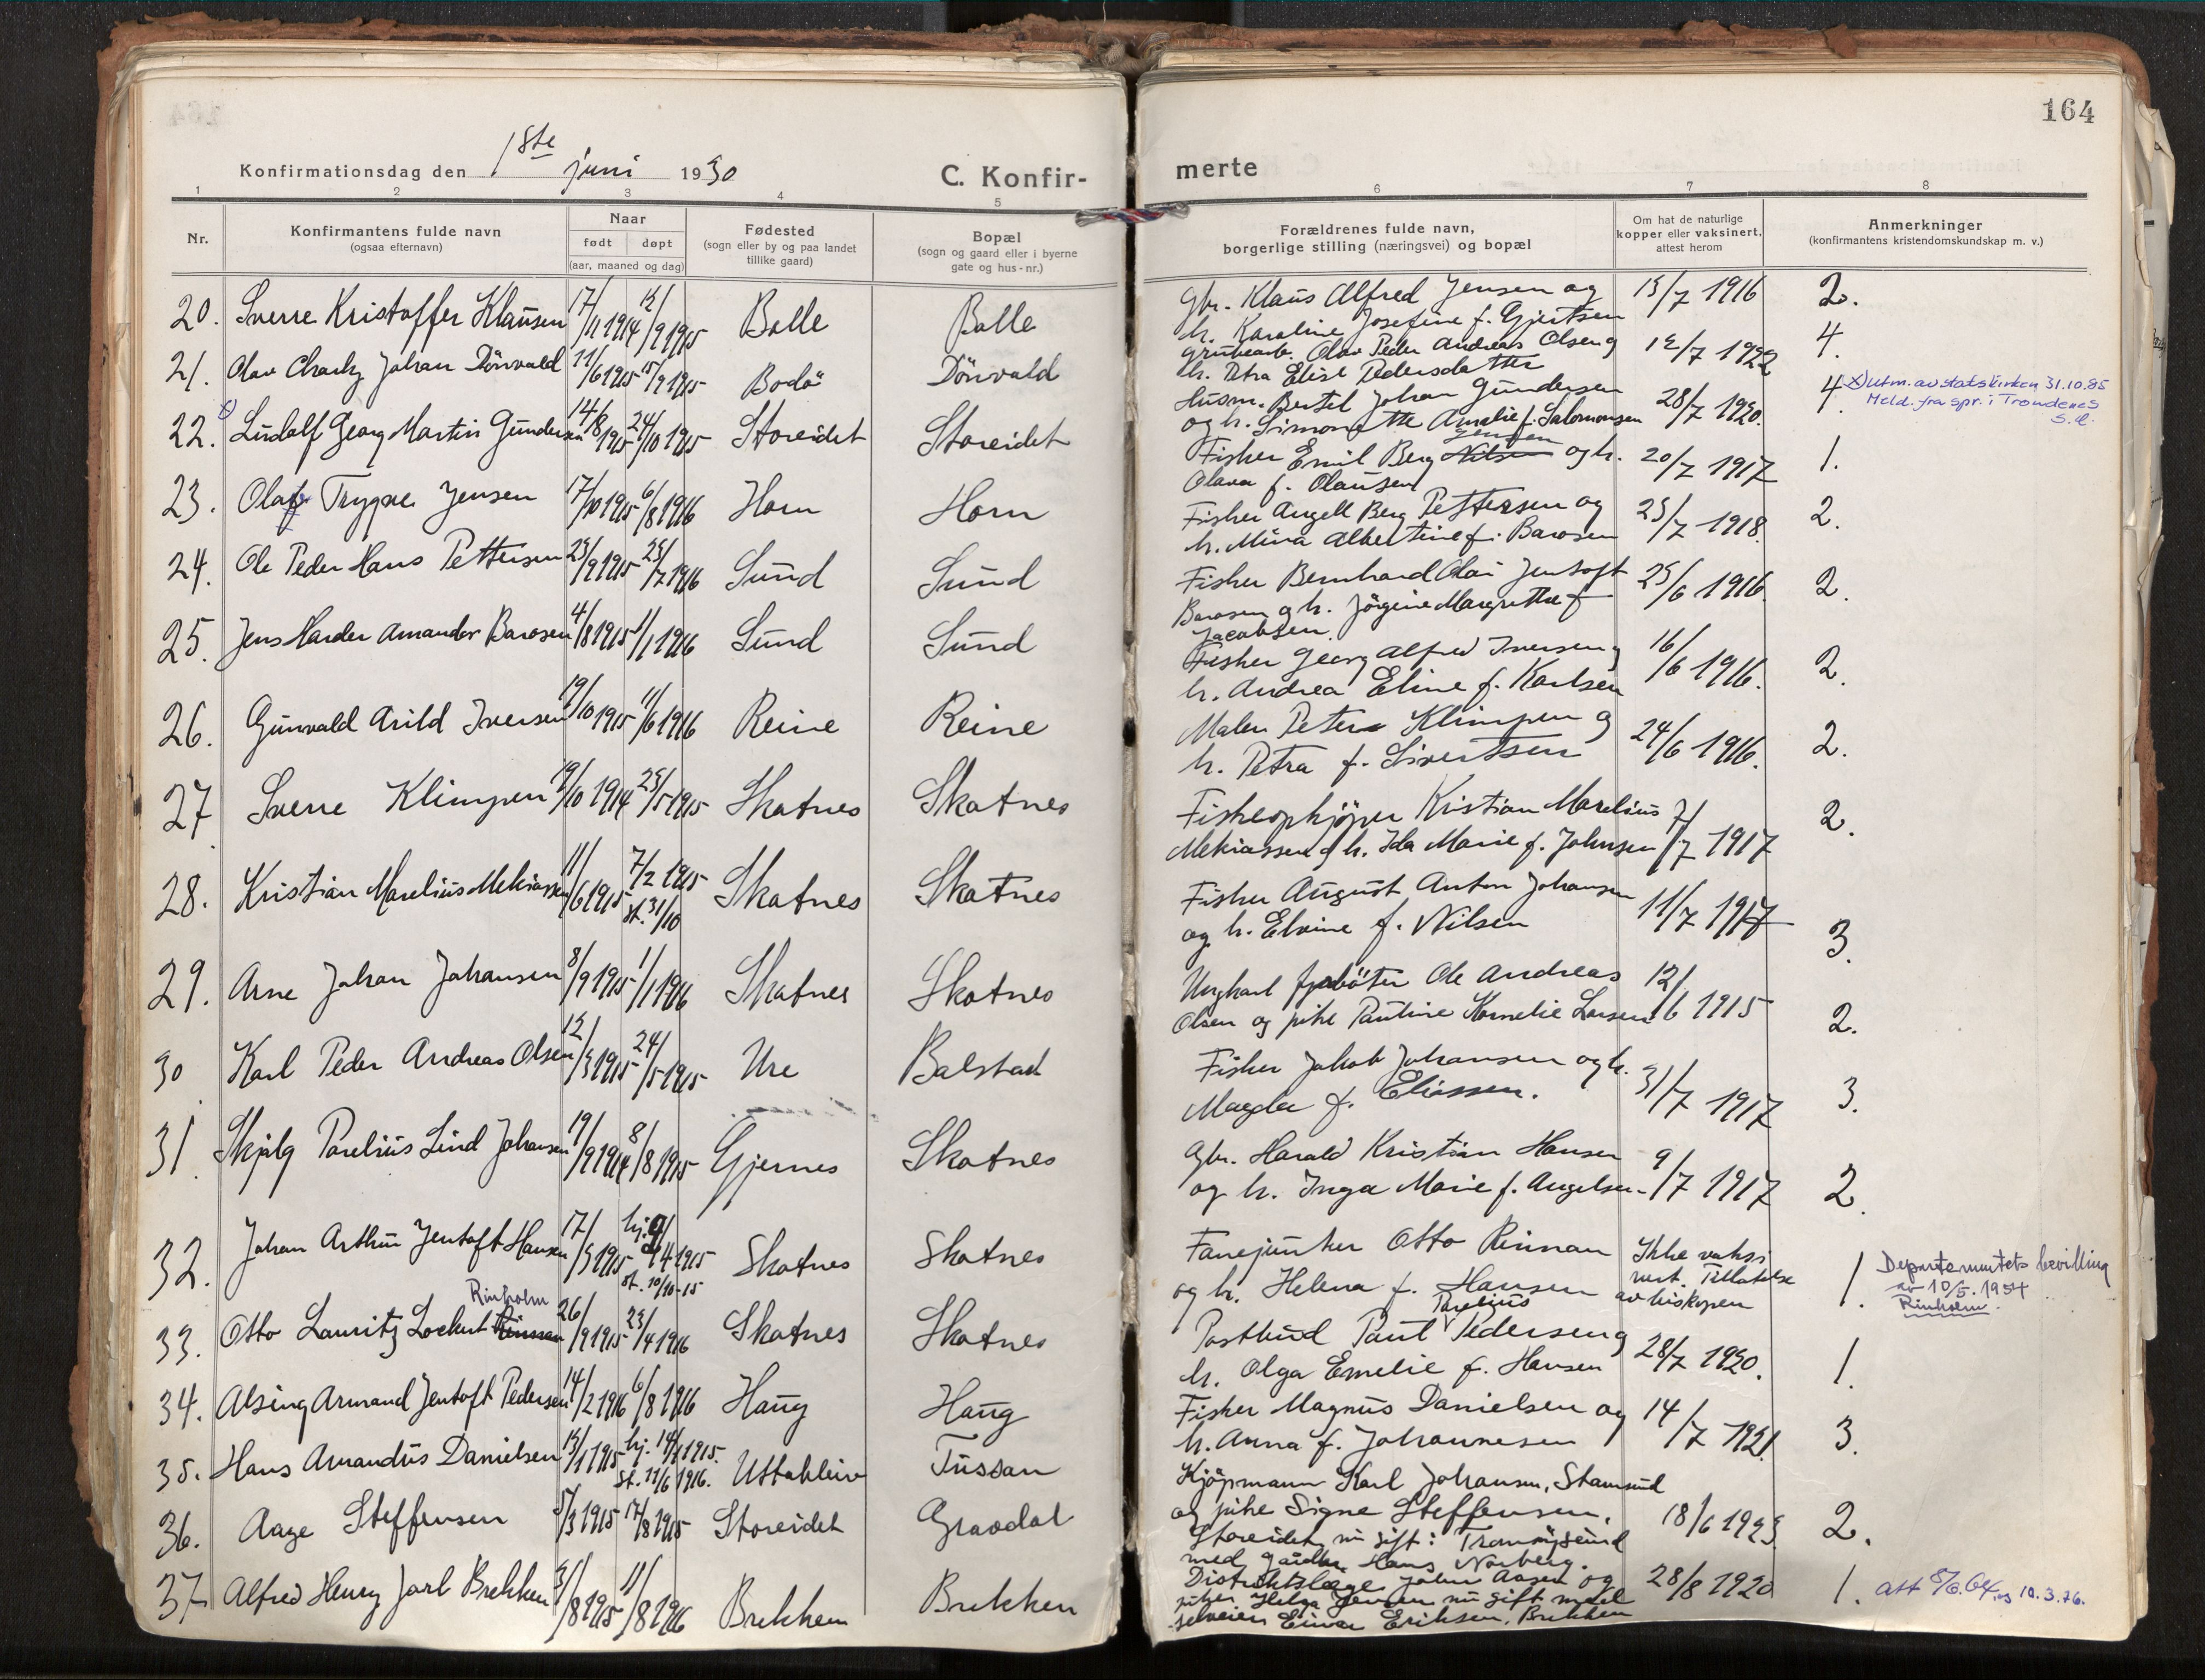 164
Konfirmationsdag den 1ste juni 1930
C. Konfir-
merte
1 2 3 4 5 6 7 8
Nr.
Konfirmantens fulde navn
(ogsaa efternavn)
Naar
født døpt
(aar, maaned og dag)
Fødested
(sogn eller by og paa landet
tillike gaard)
Bopæl
(sogn og gaard eller i byerne
gate og hus-nr.)
Forældrenes fulde navn,
borgerlige stilling (næringsvei) og bopæl
Om hat de naturlige
kopper eller vaksinert,
attest herom
Anmerkninger
(konfirmantens kristendomskundskap m. v.)
20. Sverre Kristoffer Klausen 17/11 1914 12/9 1915 Bolle Bolle
Gbr. Klaus Alfred Jensen og 13/7 1916 2.
h. Karoline Josefine f. Gjertsen
21. Olav Charly Johan Dönvald 11/6 1915 15/9 1915 Bodö Dönvald
Grubearb. Olav Peder Andreas Olsen og 12/7 1922 4.
h. Petra Elise Pedersdatter
22. x) Ludolf Georg Martin Gundersen 14/8 1915 24/10 1915 Storeidet Storeidet
Husm. Bertel Johan Gundersen 28/7 1920. 4.
og h. Simonette Amelie f. Salomonsen
x) Utm. av statskirken 31.10.85
Meld. fra spr. i Trondenes
S.E.
23. Olaf Trygve Jensen 17/10 1915 6/8 1916 Horn Horn
Jensen
Fisker Emil Berg Nilsen og h. 20/7 1917 1.
Olava f. Olausen
24. Ole Peder Hans Pettersen 23/9 1915 23/7 1916 Sund Sund
Fisker Angell Berg Pettersen og 23/7 1918. 2.
h. Mina Albertine f. Barosen
25. Jens Harder Amandor Barosen 4/8 1915 1/1 1916 Sund Sund
Fisker Bernhard Olai Jentoft 25/6 1916. 2.
Barosen og h. Jörgine Margrethe f.
Jacobsen.
26. Gunvald Arild Iversen 19/10 1915 11/6 1916 Reine Reine
Fisker Georg Alfred Iversen og 16/6 1916. 2.
h. Andrea Eline f. Karlsen
27 Sverre Klimpen 19/10 1914 25/5 1915 Skotnes Skotnes
Maler Peter Klimpen og 24/6 1916. 2.
h. Petra f. Sivertsen
28. Kristian Marelius Mekiassen 11/6 1915 7/2 1915 Skotnes Skotnes
st. 31/10
Fiskeopkjöper Kristian Marelius 7/7 1917 2.
Mekiassen og h. Ida Marie f. Johnsen
29. Arne Johan Johansen 8/9 1915 1/1 1916 Skotnes Skotnes
Fisker August Anton Johansen 11/7 1917 3.
og h. Elvine f. Nilsen
30 Karl Peder Andreas Olsen 12/3 1915 24/5 1915 Ure Balstad
Ungkarl fyrböter Ole Andreas 12/6 1915 2.
Olsen og pike Pauline Kornelie Larsen
31. Skjalg Parelius Lind Johansen 19/9 1914 8/8 1915 Gjernes Skotnes
Fisker Jakob Johansen og h. 31/7 1917 3.
Magda f. Eliassen.
32. Johan Arthur Jentoft Hansen 17/3 1915 hj. 9/4 1915 Skotnes Skotnes
st. 10/10-15
Gbr. Harald Kristian Hansen 9/7 1917 2.
og h. Inga Marie f. Angelsen
Rinholm
33. Otto Lauritz Lockert Rinnan 26/9 1915 23/4 1916 Skotnes Skotnes
Fanejunker Otto Rinnan Ikke vaksi
og h. Helena f. Hansen nert. Tillatelse
av biskopen
1. Departementets bevilling
av 10/5. 1954
Rinholm.
34. Alsing Armand Jentoft Pedersen 14/2 1916 6/8 1916 Haug Haug
Parelius
Postbud Paul Pedersen og 28/7 1930. 1.
h. Olga Emelie f. Hansen
35. Hans Amandus Danielsen 13/1 1915 hj. 14/1 1915. Uttakleiv Tussan
st. 11/6 1916.
Fisker Magnus Danielsen og 14/7 1921 3.
h. Anna f. Johannesen
36. Aage Steffensen 5/3 1915 17/8 1915 Storeidet Gravdal
Kjöpmann Karl Johansen, Stamsund
og pike Signe Steffensen, 18/6 1923 2.
Storeidet, nu gift i Tromöysund
med gårdbr. Hans Norberg.
37 Alfred Henry Jarl Brekken 3/8 1915 11/8 1916 Brekken Brekken
Distriktslæge John Aasen og 28/8 1920 1. att 8/6.64, og 10.3.76.
piken Helga Jensen nu gift med
selveier Einar Eriksen, Brekken